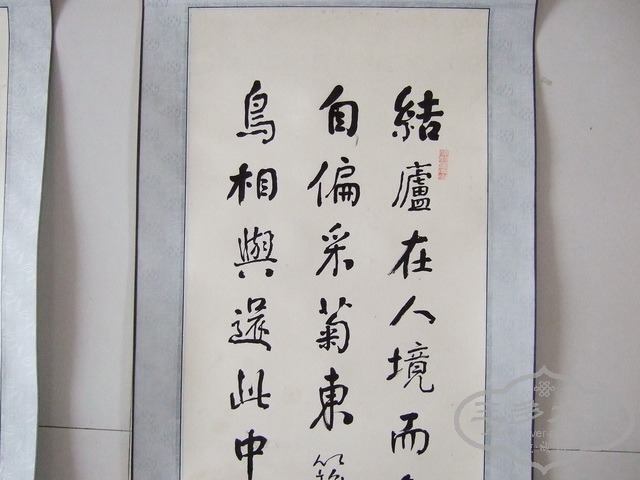 結廬在人境而
自偏采菊東籬
鳥相與還此中